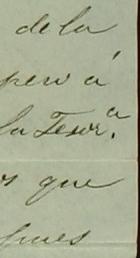 de la
pero á
la Tesorª.
que
pues